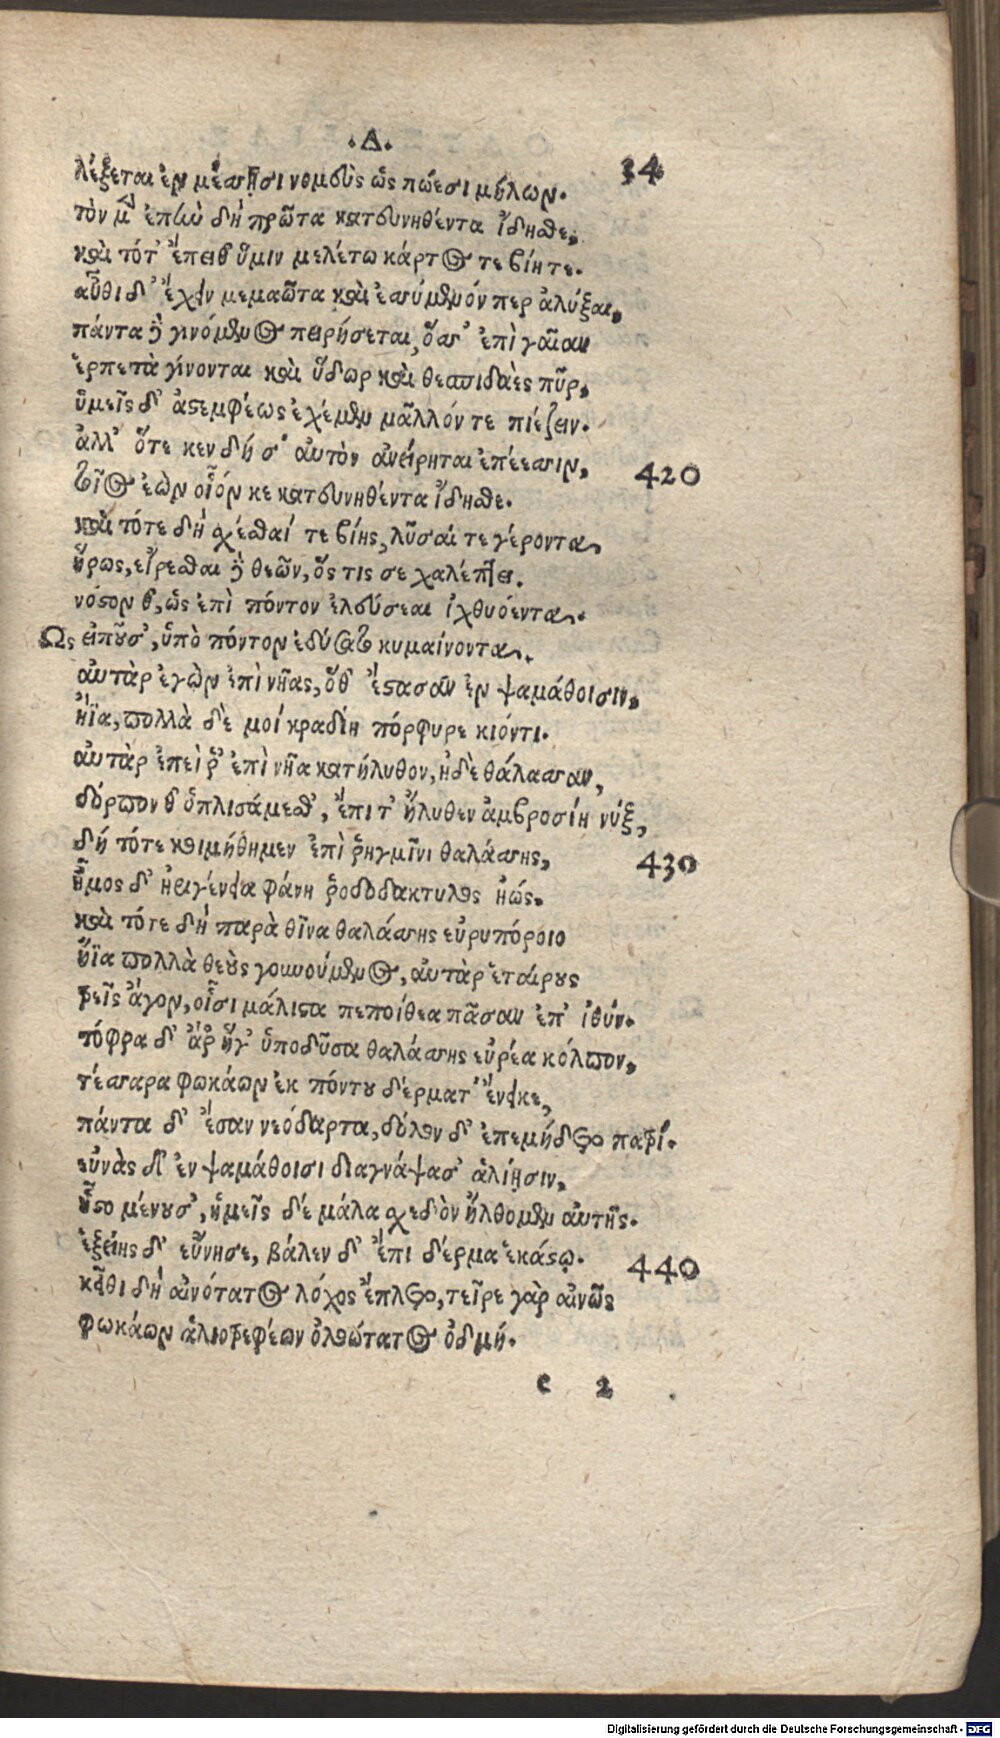 .Δ.
34
λέξεται ἐν μέσσῃσι νομεὺς ὣς πώεσι μήλων.
τὸν μὲν ἐπὴν δὴ πρῶτα κατευνηθέντα ἴδησθε,
καὶ τότ' ἔπειθ' ὕμιν μελέτω κάρτος τε βίη τε.
αὖθι δ' ἔχειν μεμαῶτα καὶ ἐσσύμενόν περ ἀλύξαι,
πάντα δὲ γινόμενος πειρήσεται, ὅσσ' ἐπὶ γαῖαν
ἑρπετὰ γίνονται καὶ ὕδωρ καὶ θεσπιδαὲς πῦρ,
ὑμεῖς δ' ἀστεμφέως ἐχέμεν μᾶλλόν τε πιέζειν.
ἀλλ' ὅτε κεν δή σ' αὐτὸν ἀνείρηται ἐπέεσσιν,
420
τοῖος ἐὼν οἷόν κε κατευνηθέντα ἴδησθε.
καὶ τότε δὴ σχέσθαί τε βίης, λῦσαί τε γέροντα,
ἥρως, εἴρεσθαι δὲ θεῶν, ὅς τίς σε χαλέπτει.
νόστον θ', ὡς ἐπὶ πόντον ἐλεύσεαι ἰχθυόεντα.
Ὣς εἰποῦσ', ὑπὸ πόντον ἐδύσατο κυμαίνοντα.
αὐτὰρ ἐγὼν ἐπὶ νῆας, ὅθ' ἕστασαν ἐν ψαμάθοισιν,
ἤϊα, πολλὰ δέ μοι κραδίη πόρφυρε κιόντι.
αὐτὰρ ἐπεί ῥ' ἐπὶ νῆα κατήλυθον, ἠδὲ θάλασσαν,
δόρπον θ' ὁπλισάμεσθ', ἐπί τ' ἤλυθεν ἀμβροσίη νύξ,
δή τότε κοιμήθημεν ἐπὶ ῥηγμῖνι θαλάσσης,
430
ἦμος δ' ἠριγένεια φάνη ῥοδοδάκτυλος ἠώς.
καὶ τότε δὴ παρὰ θῖνα θαλάσσης εὐρυπόροιο
ἤϊα πολλὰ θεοὺς γουνούμενος, αὐτὰρ ἑταίρους
τρεῖς ἄγον, οἷσι μάλιστα πεποίθεα πᾶσαν ἐπ' ἰθύν.
τόφρα δ' ἄρ' ἥγ' ὑποδῦσα θαλάσσης εὐρέα κόλπον,
τέσσαρα φωκάων ἐκ πόντου δέρματ' ἔνεικε,
πάντα δ' ἔσαν νεόδαρτα, δόλον δ' ἐπεμήδετο πατρί.
εὐνὰς δ' ἐν ψαμάθοισι διαγνάψασ' ἁλίῃσιν,
ἧστο μένουσ', ἡμεῖς δὲ μάλα σχεδὸν ἤλθομεν αὐτῆς.
ἑξείης δ' εὔνησε, βάλεν δ' ἔπι δέρμα ἑκάστῳ.
440
κεῖθι δὴ αἰνότατος λόχος ἔπλετο, τεῖρε γὰρ αἰνῶς
φωκάων ἁλιοτρεφέων ὀλοώτατος ὀδμή.
e 2
Digitalisierung gefördert durch die Deutsche Forschungsgemeinschaft - DFG